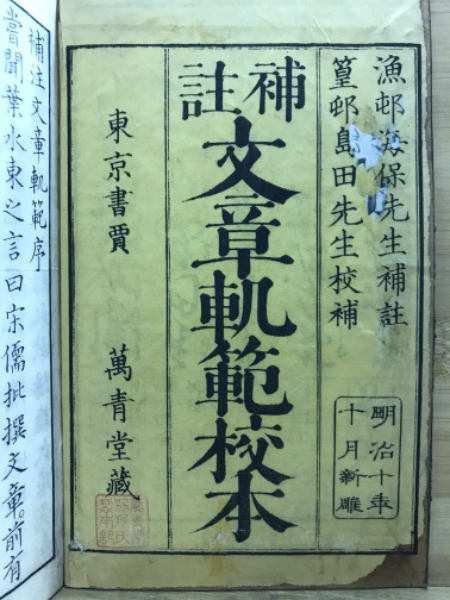 漁邨海保先生補註
篁邨島田先生校補
補註
文章軌範校本
東京書賈　萬青堂藏
明治十年
十月新雕
補注文章軌範序
嘗聞葉水東之言曰宋儒批撰文章。前有